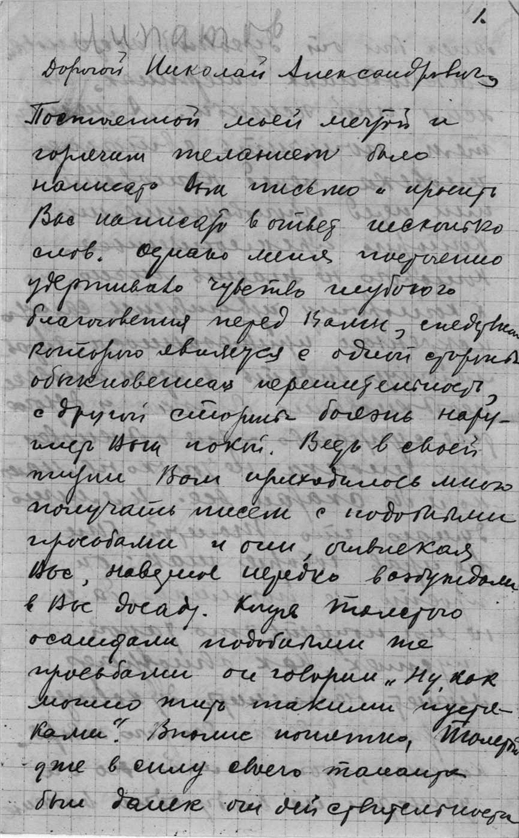 1.
Дорогой Николай Александрович,
Постоянной моей мечтой и
горячим желанием было
написать Вам письмо и просить
Вас написать в ответ несколько
слов. Однако меня постоянно
удерживало чувство глубокого
благоговения перед Вами, следствием
которого является с одной стороны
обыкновенная нерешительность,
с другой стороны боязнь нару-
шить Ваш покой. Ведь в своей
жизни Вам приходилось много
получать писем с подобными
просьбами и они, отвлекая
Вас, наверное нередко возбуждали
в Вас досаду. Когда Толстого
осаждали подобными же
просьбами он говорил „Ну, как
можно жить такими пустя-
ками“. Вполне понятно, Толстой
уже в силу своего таланта
был далек от действительности